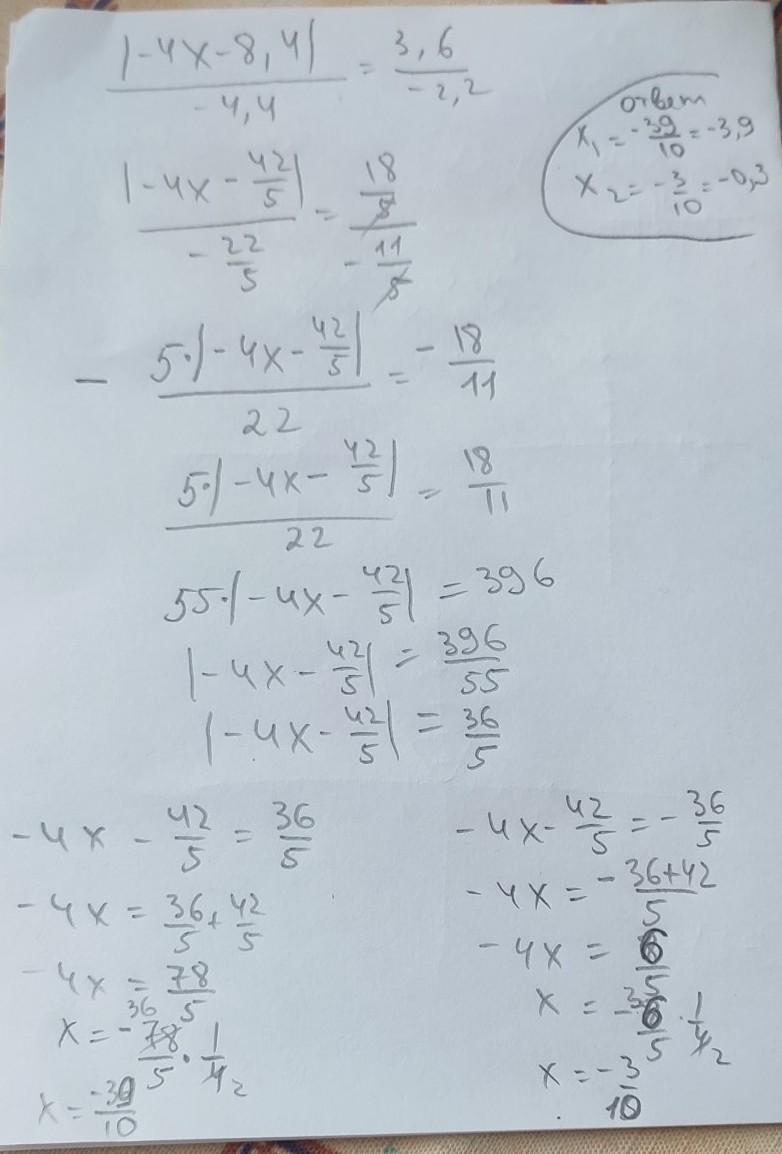 |-4x-8,4| / -4,4 = 3,6 / -2,2
ответ
x₁ = -39/10 = -3,9
x₂ = -3/10 = -0,3
|-4x - 42/5| / -22/5 = 18/5 / -11/5
- 5·|-4x - 42/5| / 22 = - 18/11
5·|-4x - 42/5| / 22 = 18/11
55·|-4x - 42/5| = 396
|-4x - 42/5| = 396/55
|-4x - 42/5| = 36/5
-4x - 42/5 = 36/5
-4x = 36/5 + 42/5
-4x = 78/5
36
x = - 78/5 · 1/4 2
x = -39/10
-4x - 42/5 = - 36/5
-4x = -36+42 / 5
-4x = 6/5
3
x = - 6/5 · 1/4 2
x = - 3/10